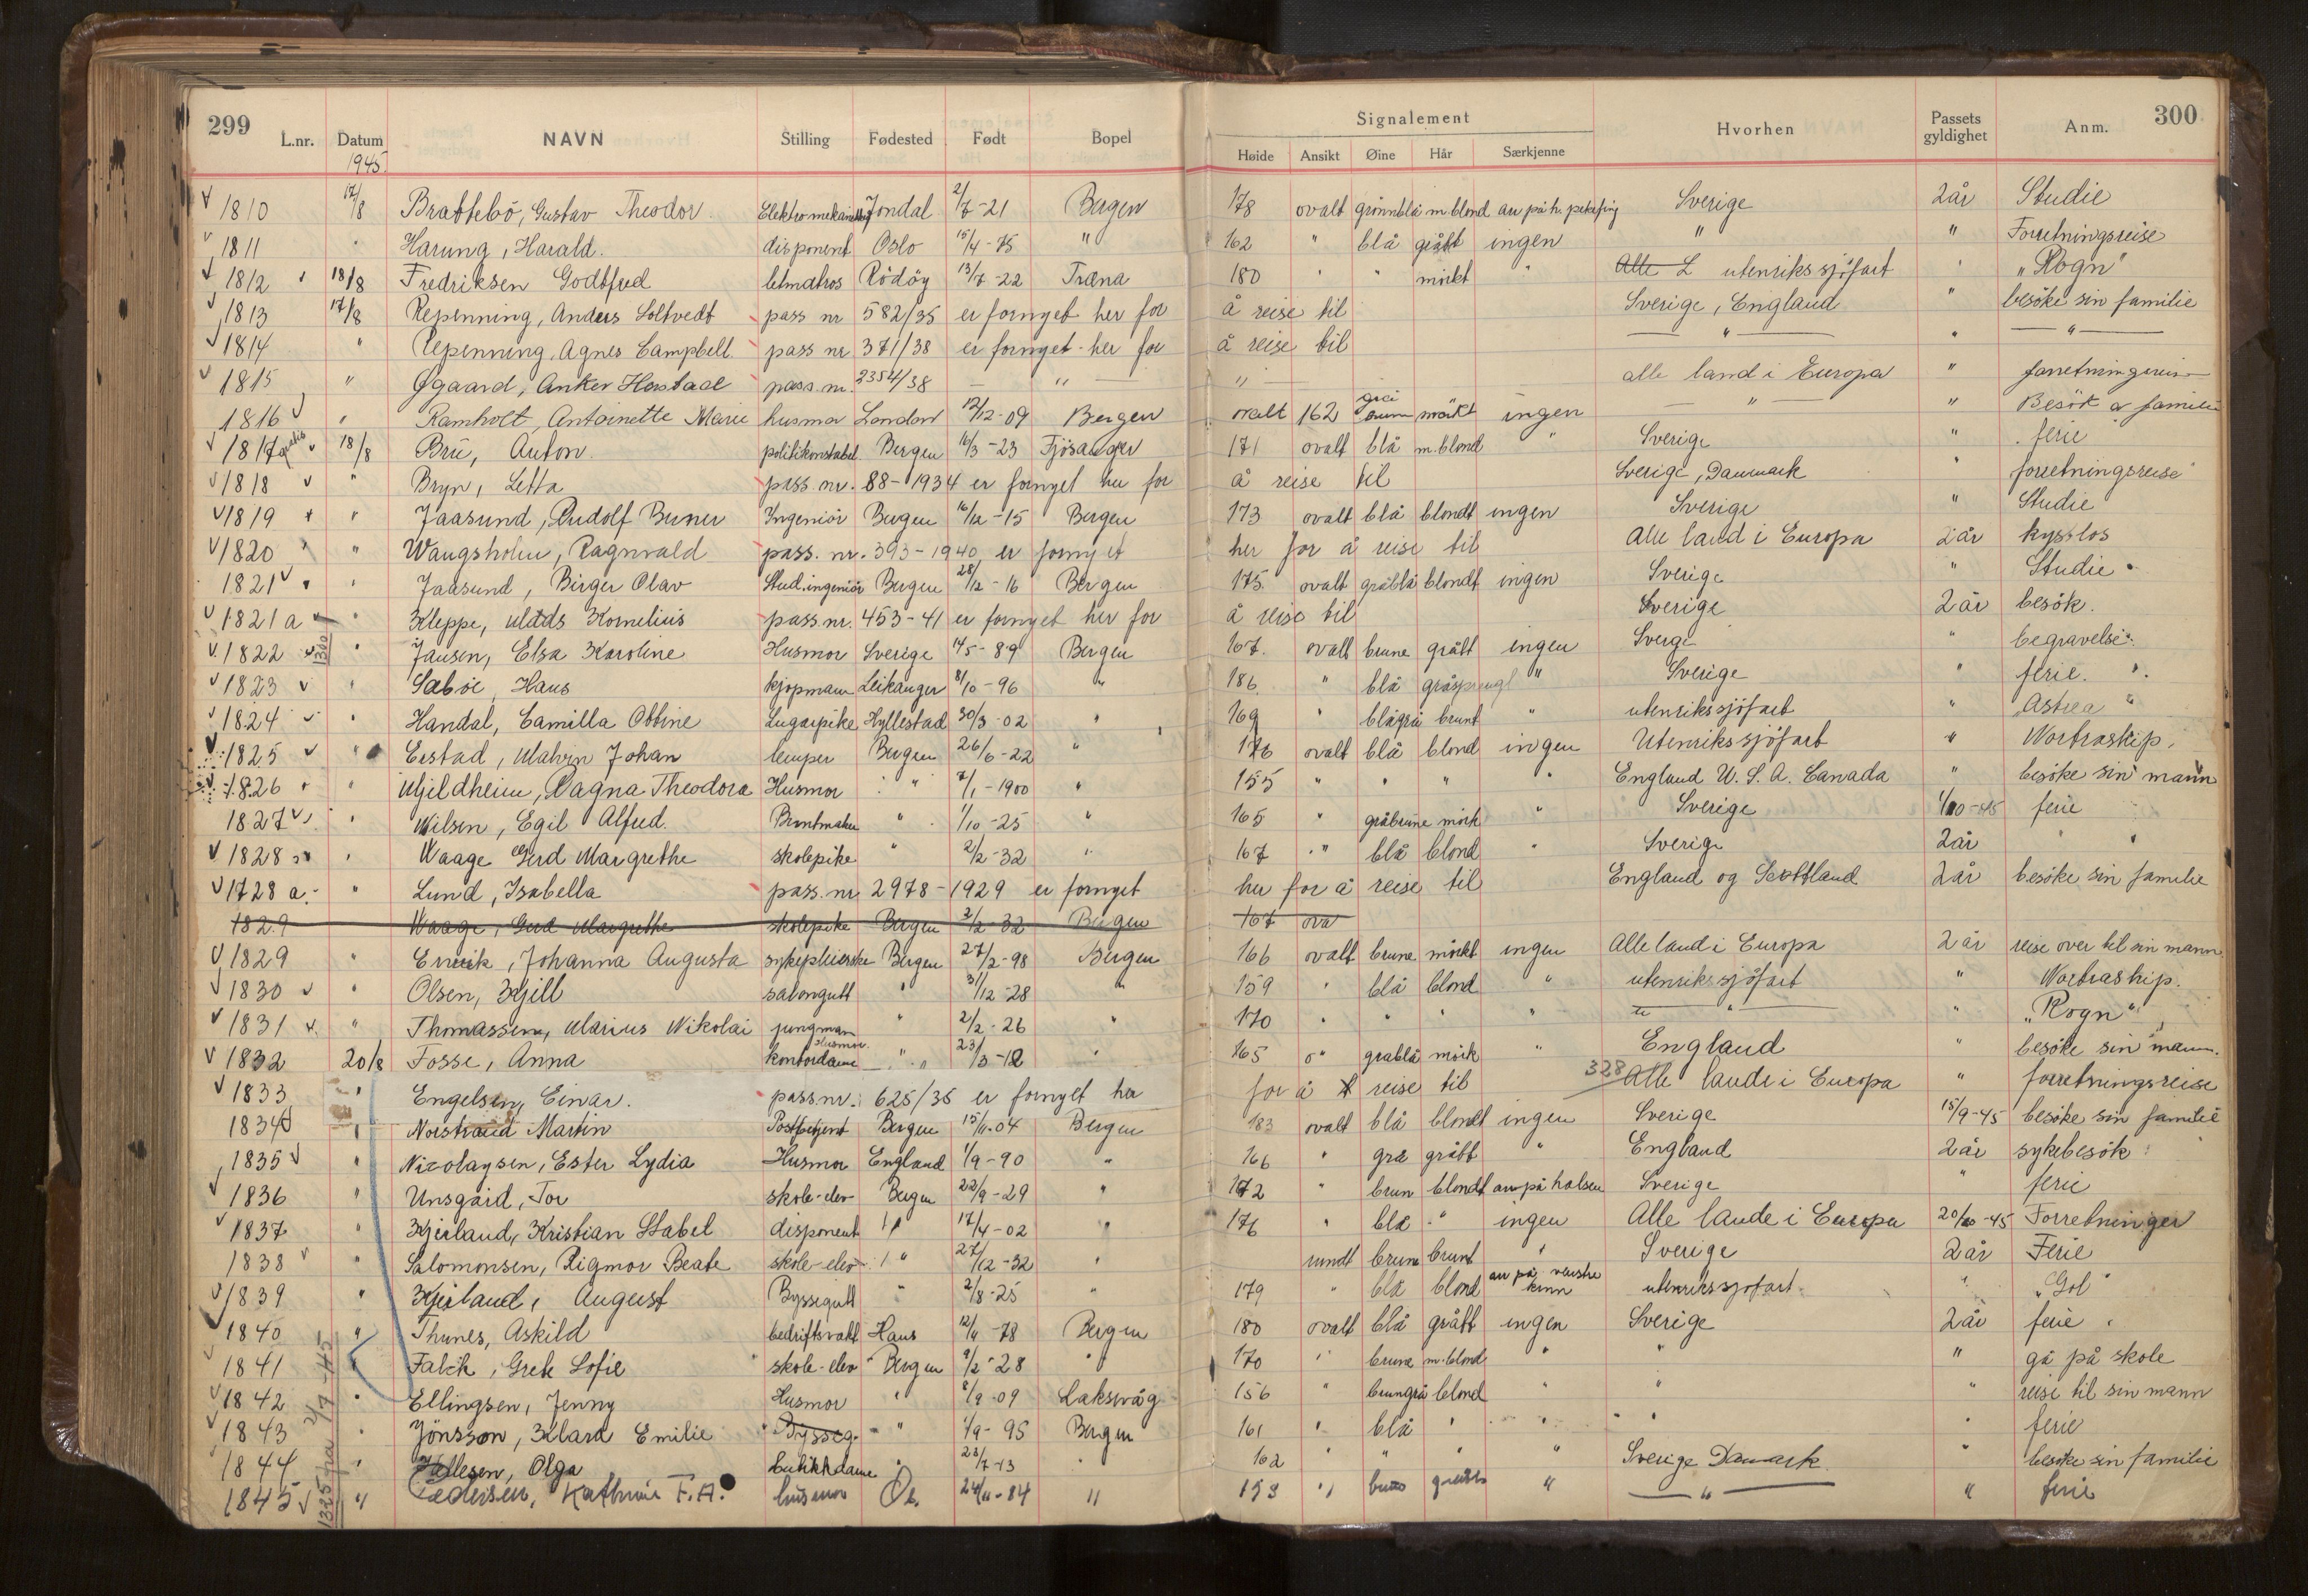 299 L.nr. Datum NAVN Stilling Fødested Født Bopel Signalement Hvorhen Passets gyldighet Anm. 300
1945 Høide Ansikt Øine Hår Særkjenne
1810 17/8 Brattebö, Gustav Theodor Jondal 2/7-21 Bergen 178 ovalt grönnblå m blond arr på h. pekefing Sverige 2 år Studie
1811 " Harung, Harald. disponent Oslo 15/4-75 " 162 " blå grått ingen " " Forretningsreise
1812 18/8 Fredriksen Godtfred letmatros Rödöy 13/7-22 Træna 180 " " mörkt " utenrikssjöfart " "Rogn"
1813 17/8 Repenning, Anders Soltvedt pass nr 582/35 er fornyet her for å reise til Sverige, England " besöke sin familie
1814 " Repenning, Agnes Campbell. pass nr 371/38 er fornyet her for å reise til " " "
1815 " Øgaard, Anker pass. nr. 2354/38 " " alle land i Europa " forretningsreise
1816 " Ramholt, Antoinette Marie husmor London 12/12-09 Bergen ovalt 162 mörkt ingen " " Besök a familie
1817 gratis 18/8 Brü, Anton politikonstabel Bergen 16/3-23 Fjösanger 171 ovalt blå m.blond " Sverige " ferie
1818 " Bryn, Letta pass. nr. 88-1934 er fornyet her for å reise til Sverige, Danmark " forretningsreise
1819 " Jaasund, Rudolf Berner Ingeniör Bergen 16/12-15 Bergen 173 ovalt blå blondt ingen Sverige " Studie
1820 " Wangsholm, Ragnvald pass. nr. 393-1940 er fornyet her for å reise til Alle land i Europa 2 år kysslos
1821 " Jaasund, Birger Olav Stud.ingeniör Bergen 28/12-16 Bergen 175. ovalt gråblå blondt ingen Sverige " Studie
1821 a " Kleppe, Mads Kornelius pass.nr. 453-41 er fornyet her for å reise til Sverige 2 år besök.
1822 " Jansen, Elsa Karoline Husmor Sverige 14/5-89 Bergen 167. ovalt brune grått ingen Sverge " begravelse.
1823 " Sæböe, Hans kjöpmann Leikanger 8/10-96 " 186. " blå gråsprengt " Sverige " ferie. "
1824 " Handal, Camilla Obbine Lugarpike Hyllestad 30/3-02 " 169 " blågrå brunt " utenrikssjöfart " "Astrea"
1825 " Eestad, Malvin Johan lemper Bergen 26/6-22 " 176 ovalt blå blond ingen Utenrikssjöfart " Nortraship.
1826 " Mjeldheim, Ragna Theodora Husmor " 7/1-1900 " 155 " " " " England U.S.A. Canada " besöke sin mann
1827 " Nilsen, Egil Alfred. Buntmaker " 1/10-25 " 165 " gråbrune mörk " Sverige 1/10-45 ferie
1828 " Waage Gerd Margrethe skolepike " 2/2-32 " 167 " blå blond " Sverige 2 år " "
1728 a. " Lund, Isabella pass. nr 2978-1929 er fornyet her for å reise til England og Scottland 2 år besöke sin familie
1829 Waage, Gerd Margrethe skolepike Bergen 2/2-32 Bergen 167 ova
1829 " Johanna Augusta sykepleierske Bergen 27/2-98 Bergen 166 ovalt brune mörkt ingen Alle land i Europa 2 år reise over til sin mann
1830 " Olsen, Kjell salongutt " 3/12-28 " 159 " blå blond " utenrikssjöfart " Nortraship.
1831 " Thomassen, Marius Nikolai jungman " 2/2-26 " 170 " " " " " " "Rogn"
1832 20/8 Fosse, Anna Husmor. kontordame " 23/3-12 " 165 " gråblå mörk " England " besöke sin mann.
1833 " Engelsen, Einar. pass.nr. 625/35 er fornyet her for å reise til 328 Alle lande i Europa " forretningsreise
1834 " Norstrand Martin Postbetjent Bergen 15/11-04 Bergen 183 ovalt blå blondt ingen Sverige 15/9-45 besöke sin familie
1835 " Nicolaysen, Ester Lydia Husmor England 1/9-90 " 166 " grå grått " England 2 år sykebesök
1836 " Unsgård, Tor skole-elev Bergen 22/9-29 " 172 " brun blondt arr på halsen Sverige " ferie
1837 " Kjerland, Kristian Stabel disponent " 17/4-02 " 176 " blå " ingen Alle lande i Europa 20/10-45 Forretninger
1838 " Salomonsen, Rigmor Beate skole-elev " 27/12-32 " rundt brune brunt " Sverige 2 år Ferie
1839 " Kjerland, August Byssegutt " 2/8-25 " 179 " blå blond arr på venstre kinn utenrikssjöfart. " "Gol"
1840 " Thunes, Askild bedriftsvakt Haus 12/11-78 Bergen 180 ovalt blå grått ingen Sverige 2 år ferie
1841 " Falck, Grete Sofie skole-elev Bergen 9/2-28 " 170 " brune m.blond " " " gå på skole
1842 " Ellingsen, Jenny Husmor " 8/9-09 Laksevåg 156 " brungrå blond " " " reise til sin mann
1843 " Jönsson, Klara Emilie Bysseg. " 1/9-95 Bergen 161 " blå " " " " ferie
1844 " Olga butikkdame " 23/7-13 " 162 " " " " Sverige Danmark " besöke sin familie
1845 " Pedersen, Kathrine F.A. husmor 24/11-84 " 153 " " " " ferie
1325 fra 2/7-45